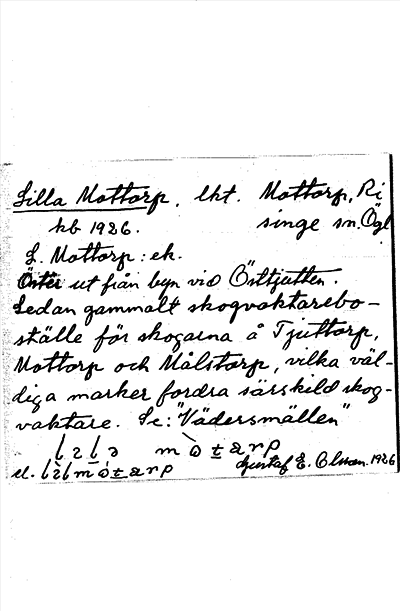 Lilla Mottorp, lht. Mottorp, Ri
kb 1926. singe sn. Ögl
L. Mottorp: ek.
Öster ut från byn vid Östtjutten.
Sedan gammalt skogvaktarebo-
ställe för skogarna å Tjuttorp,
Mottorp och Målstorp, vilka väl-
diga marker fordra särskild skog-
vaktare. Se: "Vädersmällen"
el.
Gustaf E. Olsson. 1926